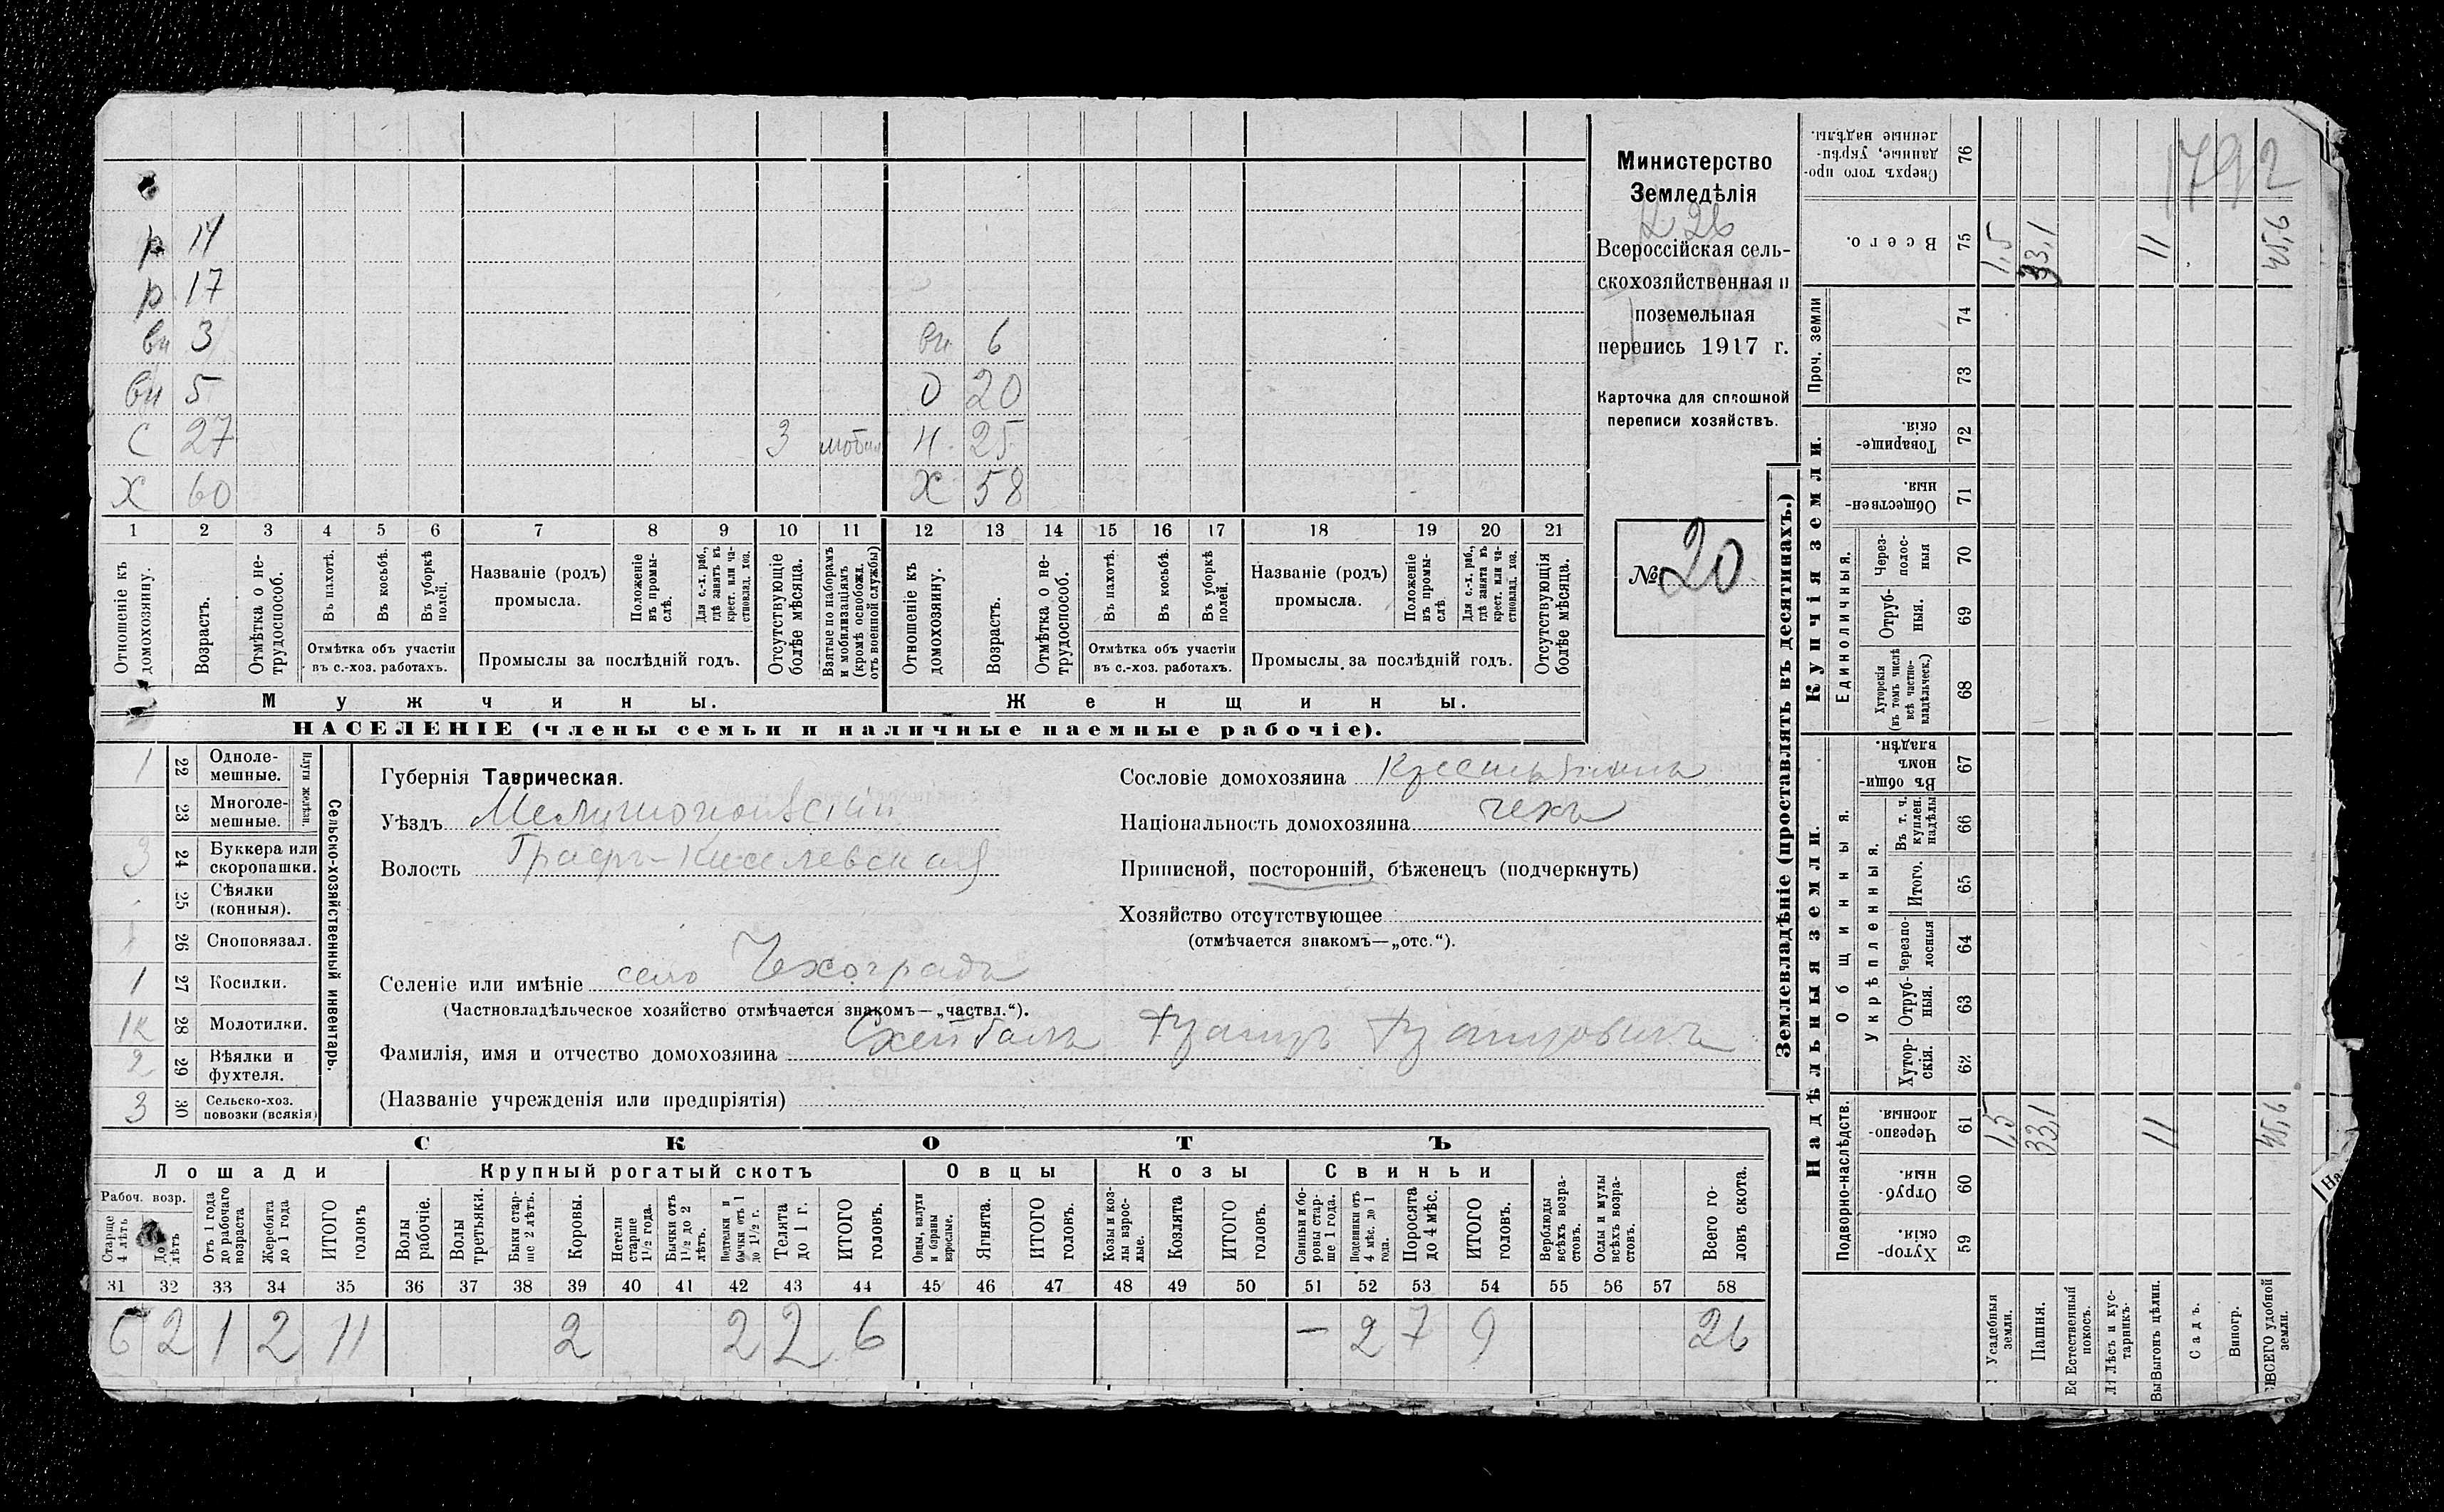 р 14
р 17
вн 3 вн 6
вн 5 О 20
С 27 3 мобил Н. 25
Х 60 Х 58
1 2 3 4 5 6 7 8 9 10 11 12 13 14 15 16 17 18 19 20 21
Отношеніе къ домохозяину.
Возрастъ.
Отмѣтка о нетрудоспособ.
Въ пахотѣ.
Въ косьбѣ.
Въ уборкѣ полей.
Отмѣтка объ участіи въ с.-хоз. работахъ.
Названіе (родъ) промысла.
Положеніе въ промыслѣ.
Для с.-х. раб., гдѣ занятъ въ крест. или частновлад. хоз.
Промыслы за послѣдній годъ.
Отсутствующіе болѣе мѣсяца.
Взятые по наборамъ и мобилизаціямъ (кромѣ освобожд. отъ военной службы)
Отношеніе къ домохозяину.
Возрастъ.
Отмѣтка о нетрудоспособ.
Въ пахотѣ.
Въ косьбѣ.
Въ уборкѣ полей.
Отмѣтка объ участіи въ с.-хоз. работахъ.
Названіе (родъ) промысла.
Положеніе въ промыслѣ
Для с.-х. раб., гдѣ занята въ крест. или частновлад. хоз.
Промыслы за послѣдній годъ.
Отсутствующія болѣе мѣсяца.
Мужчины.
Женщины.
НАСЕЛЕНІЕ (члены семьи и наличные наемные рабочіе).
Министерство
Земледѣлія
26
Всероссійская сель-
скохозяйственная и
поземельная
перепись 1917 г.
Карточка для сплошной
переписи хозяйствъ.
№ 20
1 22 Одноле-мешные.
23 Многоле-мешные.
Плуги желѣзн.
3 24 Буккера или скоропашки.
25 Сѣялки (конныя).
26 Сноповязал.
1 27 Косилки.
1к 28 Молотилки.
2 29 Вѣялки и фухтеля.
3 30 Сельско-хоз. повозки (всякія)
Сельско-хозяйственный инвентарь.
Губернія Таврическая.
Уѣздъ Мелитопольскій
Волость Графъ-Киселевская
Селеніе или имѣніе село Чехоградъ
(Частновладѣльческое хозяйство отмѣчается знакомъ—„частвл.“).
Фамилія, имя и отчество домохозяина Схейбалъ Францъ Францовичъ
(Названіе учрежденія или предпріятія)
Сословіе домохозяина Крестьянинъ
Національность домохозяина чехъ
Приписной, посторонній, бѣженецъ (подчеркнуть)
Хозяйство отсутствующее
(отмѣчается знакомъ—„отс.“).
СКОТЪ
Лошади Крупный рогатый скотъ Овцы Козы Свиньи
Рабоч. возр.
Старше 4 лѣтъ
До лѣтъ
Отъ 1 года до рабочаго возраста
Жеребята до 1 года
ИТОГО головъ
Волы рабочіе.
Волы третьяки.
Быки старше 2 лѣтъ.
Коровы.
Нетели старше 1½ года.
Бычки отъ 1½ до 2 лѣтъ.
Подтелки и бычки отъ 1 до 1½ г.
Телята до 1 г.
ИТОГО головъ.
Овцы, валухи и бараны взрослые.
Ягнята.
ИТОГО головъ.
Козы и козлы взрослые.
Козлята
ИТОГО головъ.
Свиньи и боровы старше 1 года.
Подсвинки отъ 4 мѣс. до 1 года.
Поросята до 4 мѣс.
ИТОГО головъ.
Верблюды всѣхъ возрастовъ.
Ослы и мулы всѣхъ возрастовъ.
Всего головъ скота.
31 32 33 34 35 36 37 38 39 40 41 42 43 44 45 46 47 48 49 50 51 52 53 54 55 56 57 58
6 2 1 2 11 2 2 2 6 — 2 7 9 26
Землевладѣніе (проставлять въ десятинахъ.)
Надѣльныя земли.
Купчія земли.
Проч. земли
Подворно-наслѣдств.
Общинныя.
Укрѣпленныя.
Единоличныя.
Сверхъ того проданные, укрѣпленные надѣлы. 76
Всего. 75 1,5 33,1 11 45,6
1792
74
73
Товарищескія. 72
Общественныя. 71
Через-полосныя 70
Отруб-ныя. 69
Хуторскія (въ томъ числѣ всѣ частновладѣльческ.) 68
Въ общинномъ владѣн. 67
Въ т. ч. куплен. надѣлы 66
Итого. 65
Черезполосныя 64
Отруб-ныя. 63
Хутор-скія. 62
Черезполосныя. 61 1,5 33,1 11 45,6
Отруб-ныя. 60
Хутор-скія. 59
Усадебныя земли.
Пашня.
Естественный покосъ.
Лѣсъ и кустарникъ.
Выгонъ цѣлин.
Садъ.
Виногр.
ВСЕГО удобной земли.